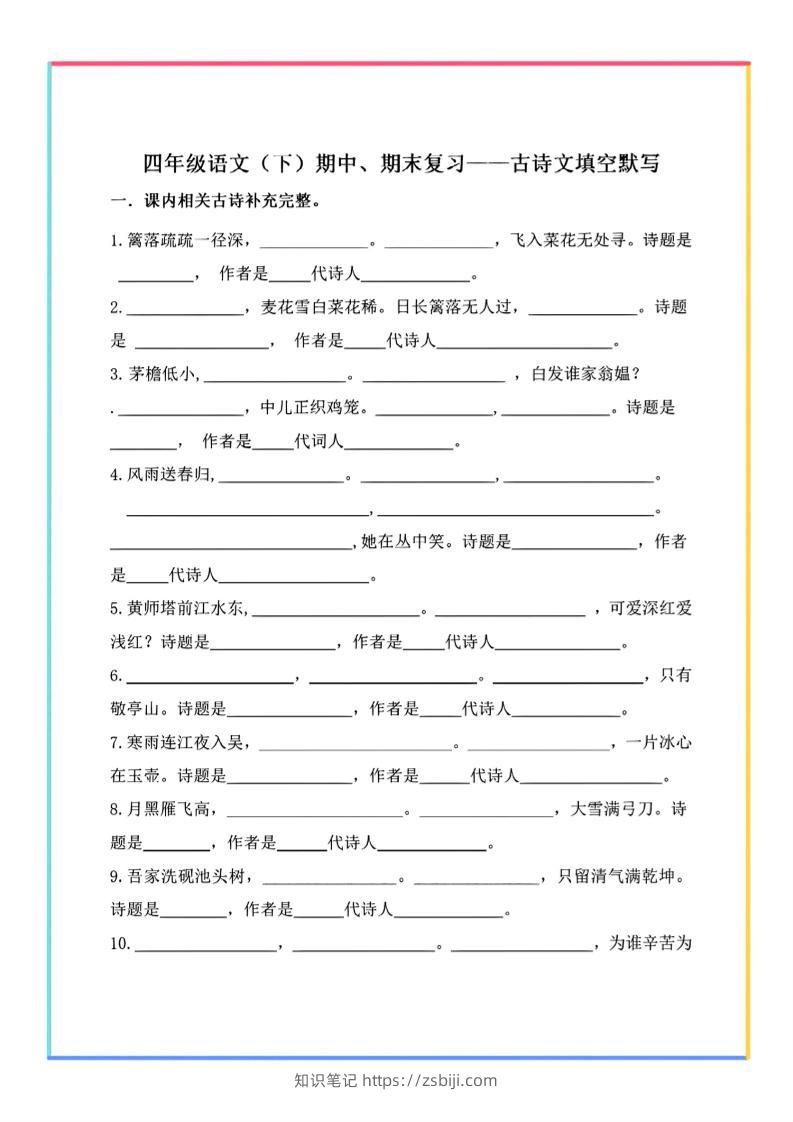 四年级语文（下）期中、期末复习——古诗文填空默写
一．课内相关古诗补充完整。
1.篱落疏疏一径深，_____________。_____________，飞入菜花无处寻。诗题是
_________， 作者是_____代诗人_____________。
2.______________，麦花雪白菜花稀。日长篱落无人过，_____________。诗题
是 ________________， 作者是_____代诗人_____________________。
3. 茅檐低小,_________________。_________________ ，白发谁家翁媪？
._______________，中儿正织鸡笼。______________,_____________。诗题是
________， 作者是_____代词人_____________。
4.风雨送春归,_______________。________________,__________________。
_____________________________,_________________________________。
_____________________________,她在丛中笑。诗题是_______________，作者
是_____代诗人__________________。
5.黄师塔前江水东,____________________。__________________ ，可爱深红爱
浅红？诗题是_______________，作者是_____代诗人_______________。
6.____________________，____________________。__________________，只有
敬亭山。诗题是_______________，作者是_____代诗人_____________。
7.寒雨连江夜入吴，_______________________。_________________，一片冰心
在玉壶。诗题是_______________，作者是______代诗人_________________。
8.月黑雁飞高，_____________________。________________，大雪满弓刀。诗
题是________，作者是______代诗人_____________。
9.吾家洗砚池头树，________________。_______________，只留清气满乾坤。
诗题是________，作者是______代诗人_____________。
10._________________，_________________。_________________，为谁辛苦为
知识笔记 https://zsbiji.com